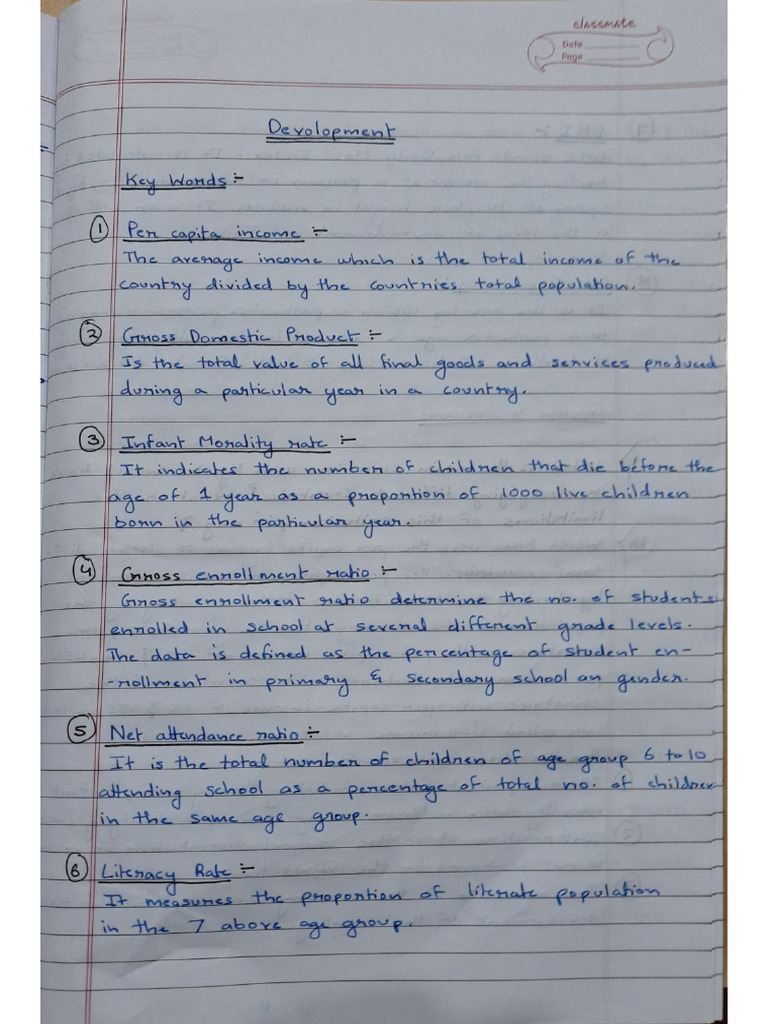 classmate
Date
Page
Devolopment
Key Words :-
1 Per capita income :-
The average income which is the total income of the
country divided by the countries total population.
2 Gross Domestic Product :-
Is the total value of all final goods and services produced
during a particular year in a country.
3 Infant Morality rate :-
It indicates the number of children that die before the
age of 1 year as a proportion of 1000 live children
born in the particular year.
4 Gross enrollment ratio :-
Gross enrollment ratio determine the no. of students
enrolled in school at several different grade levels.
The data is defined as the percentage of student en-
-rollment in primary & secondary school on gender.
5 Net attendance ratio :-
It is the total number of children of age group 6 to 10
attending school as a percentage of total no. of children
in the same age group.
6 Literacy Rate :-
It measures the proportion of literate population
in the 7 above age group.